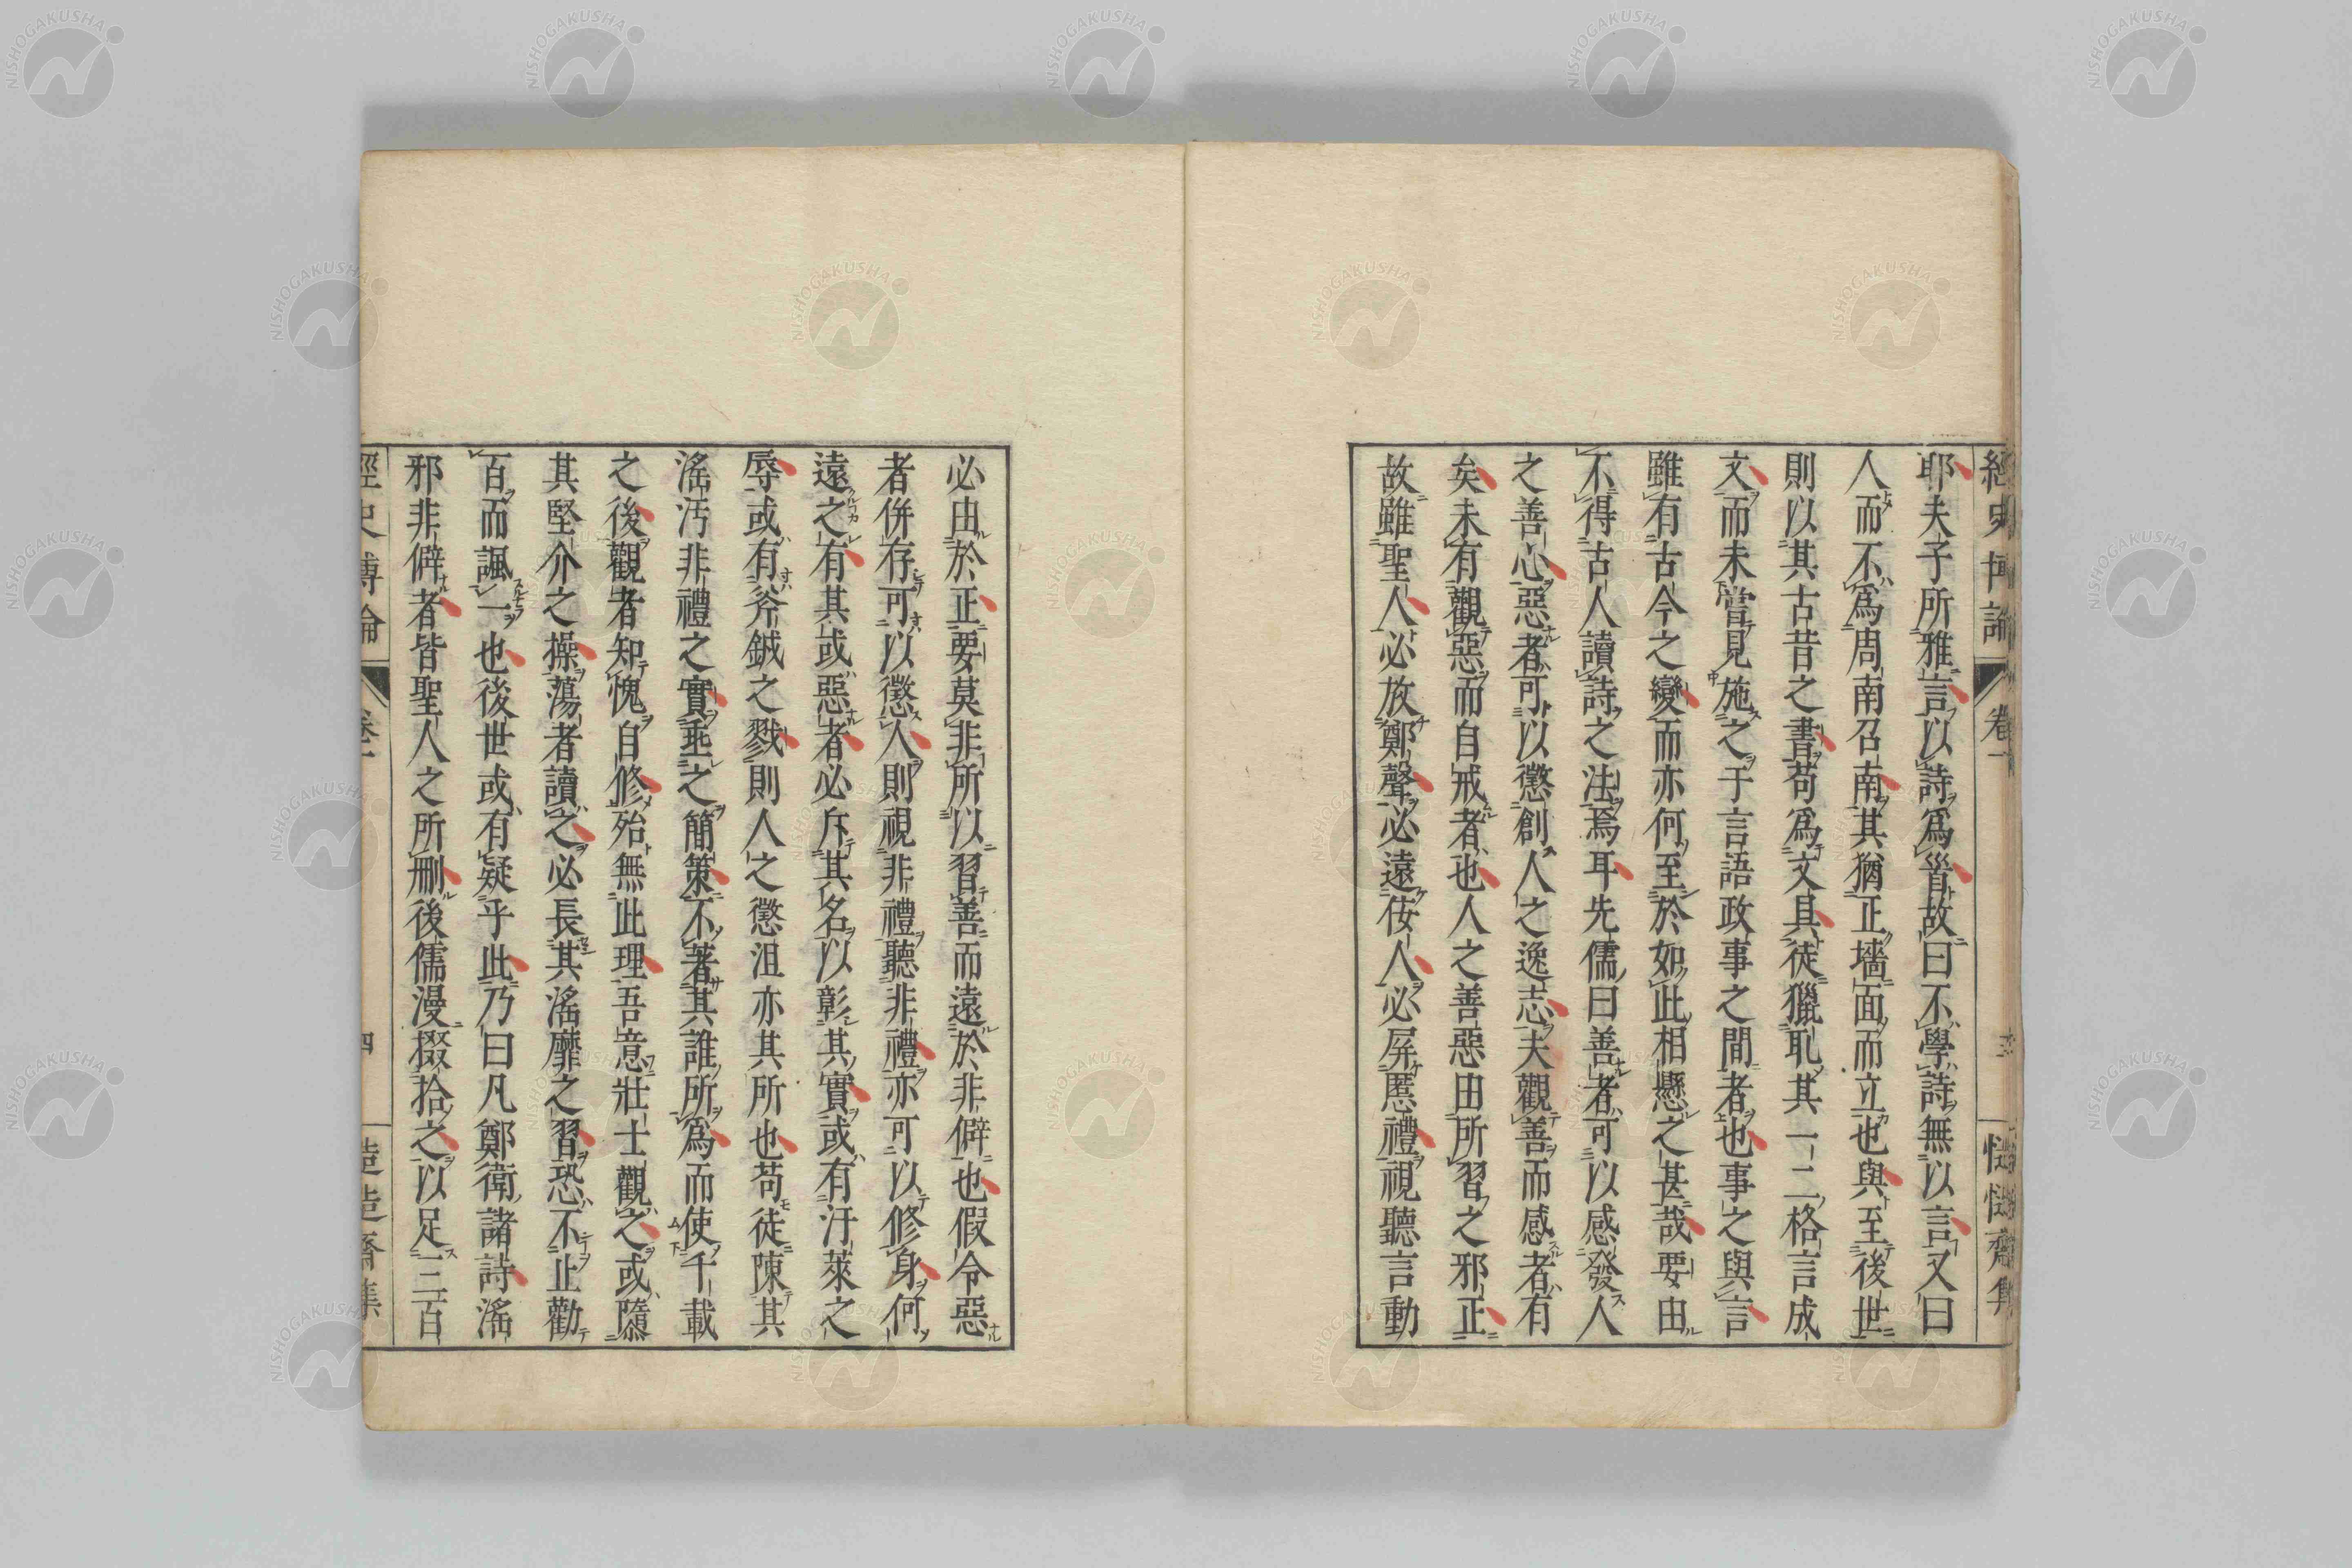 經史博論 卷一 三 慥慥齋集
耶夫子所雅言以詩爲首故曰不學詩無以言又曰
人而不爲周南召南其猶正墻面而立也與至後世
則以其古昔之書苟爲文具徒獵耻其一二格言成
文而未嘗見施之于言語政事之間者也事之與言
雖有古今之變而亦何至於如此相懸之甚哉要由
不得古人讀詩之法焉耳先儒曰善者可以感發人
之善心惡者可以懲創人之逸志夫觀善而感者有
矣未有觀惡而自戒者也人之善惡由所習之邪正
故雖聖人必放鄭聲必遠佞人必屏慝禮視聽言動
必由於正要莫非所以習善而遠於非僻也假令惡
者併存可以懲人則視非禮聽非禮亦可以修身何
遠之有其或惡者必斥其名以彰其實或有汙萊之
辱或有斧鉞之戮則人之懲沮亦其所也苟徒陳其
淫汚非禮之實垂之簡策不著其誰所爲而使千載
之後觀者知愧自修殆無此理吾意壯士觀之或隳
其堅介之操蕩者讀之必長其淫靡之習恐不止勸
百而諷一也後世或有疑乎此乃曰凡鄭衛諸詩淫
邪非僻者皆聖人之所刪後儒漫掇拾之以足三百
經史博論 卷一 四 慥慥齋集
NISHOGAKUSHA